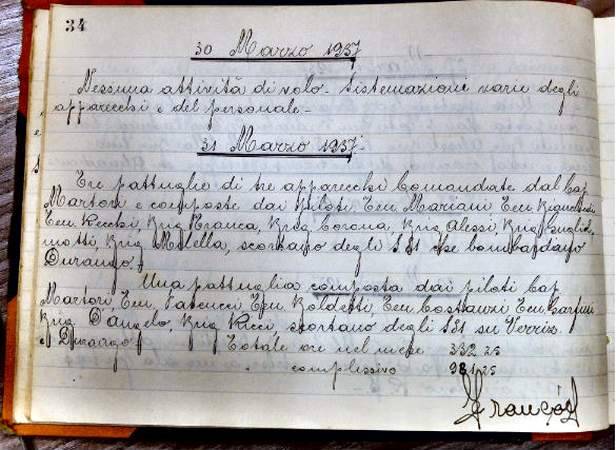 34
30 Marzo 1937
Nessuna attività di volo. Sistemazioni varie degli
apparecchi e del personale.
31 Marzo 1937.
Tre pattuglie di tre apparecchi Comandate dal Cap
Martori e composte dai piloti Ten Mariani Ten
Ten Recchi, Brig Branca, Brig Corona, Brig Alessi, Brig Gugliel
motti, Brig Milella, scortano degli S81 che bombardano
Durango
Una pattuglia composta dai piloti Cap
Martori Ten Pascucci Ten Ten Ten Carfini
Brig D'Angelo, Brig Ricci, scortano degli S81 su
e Durango Totale ore nel mese 332 25
" complessivo 981 25
François